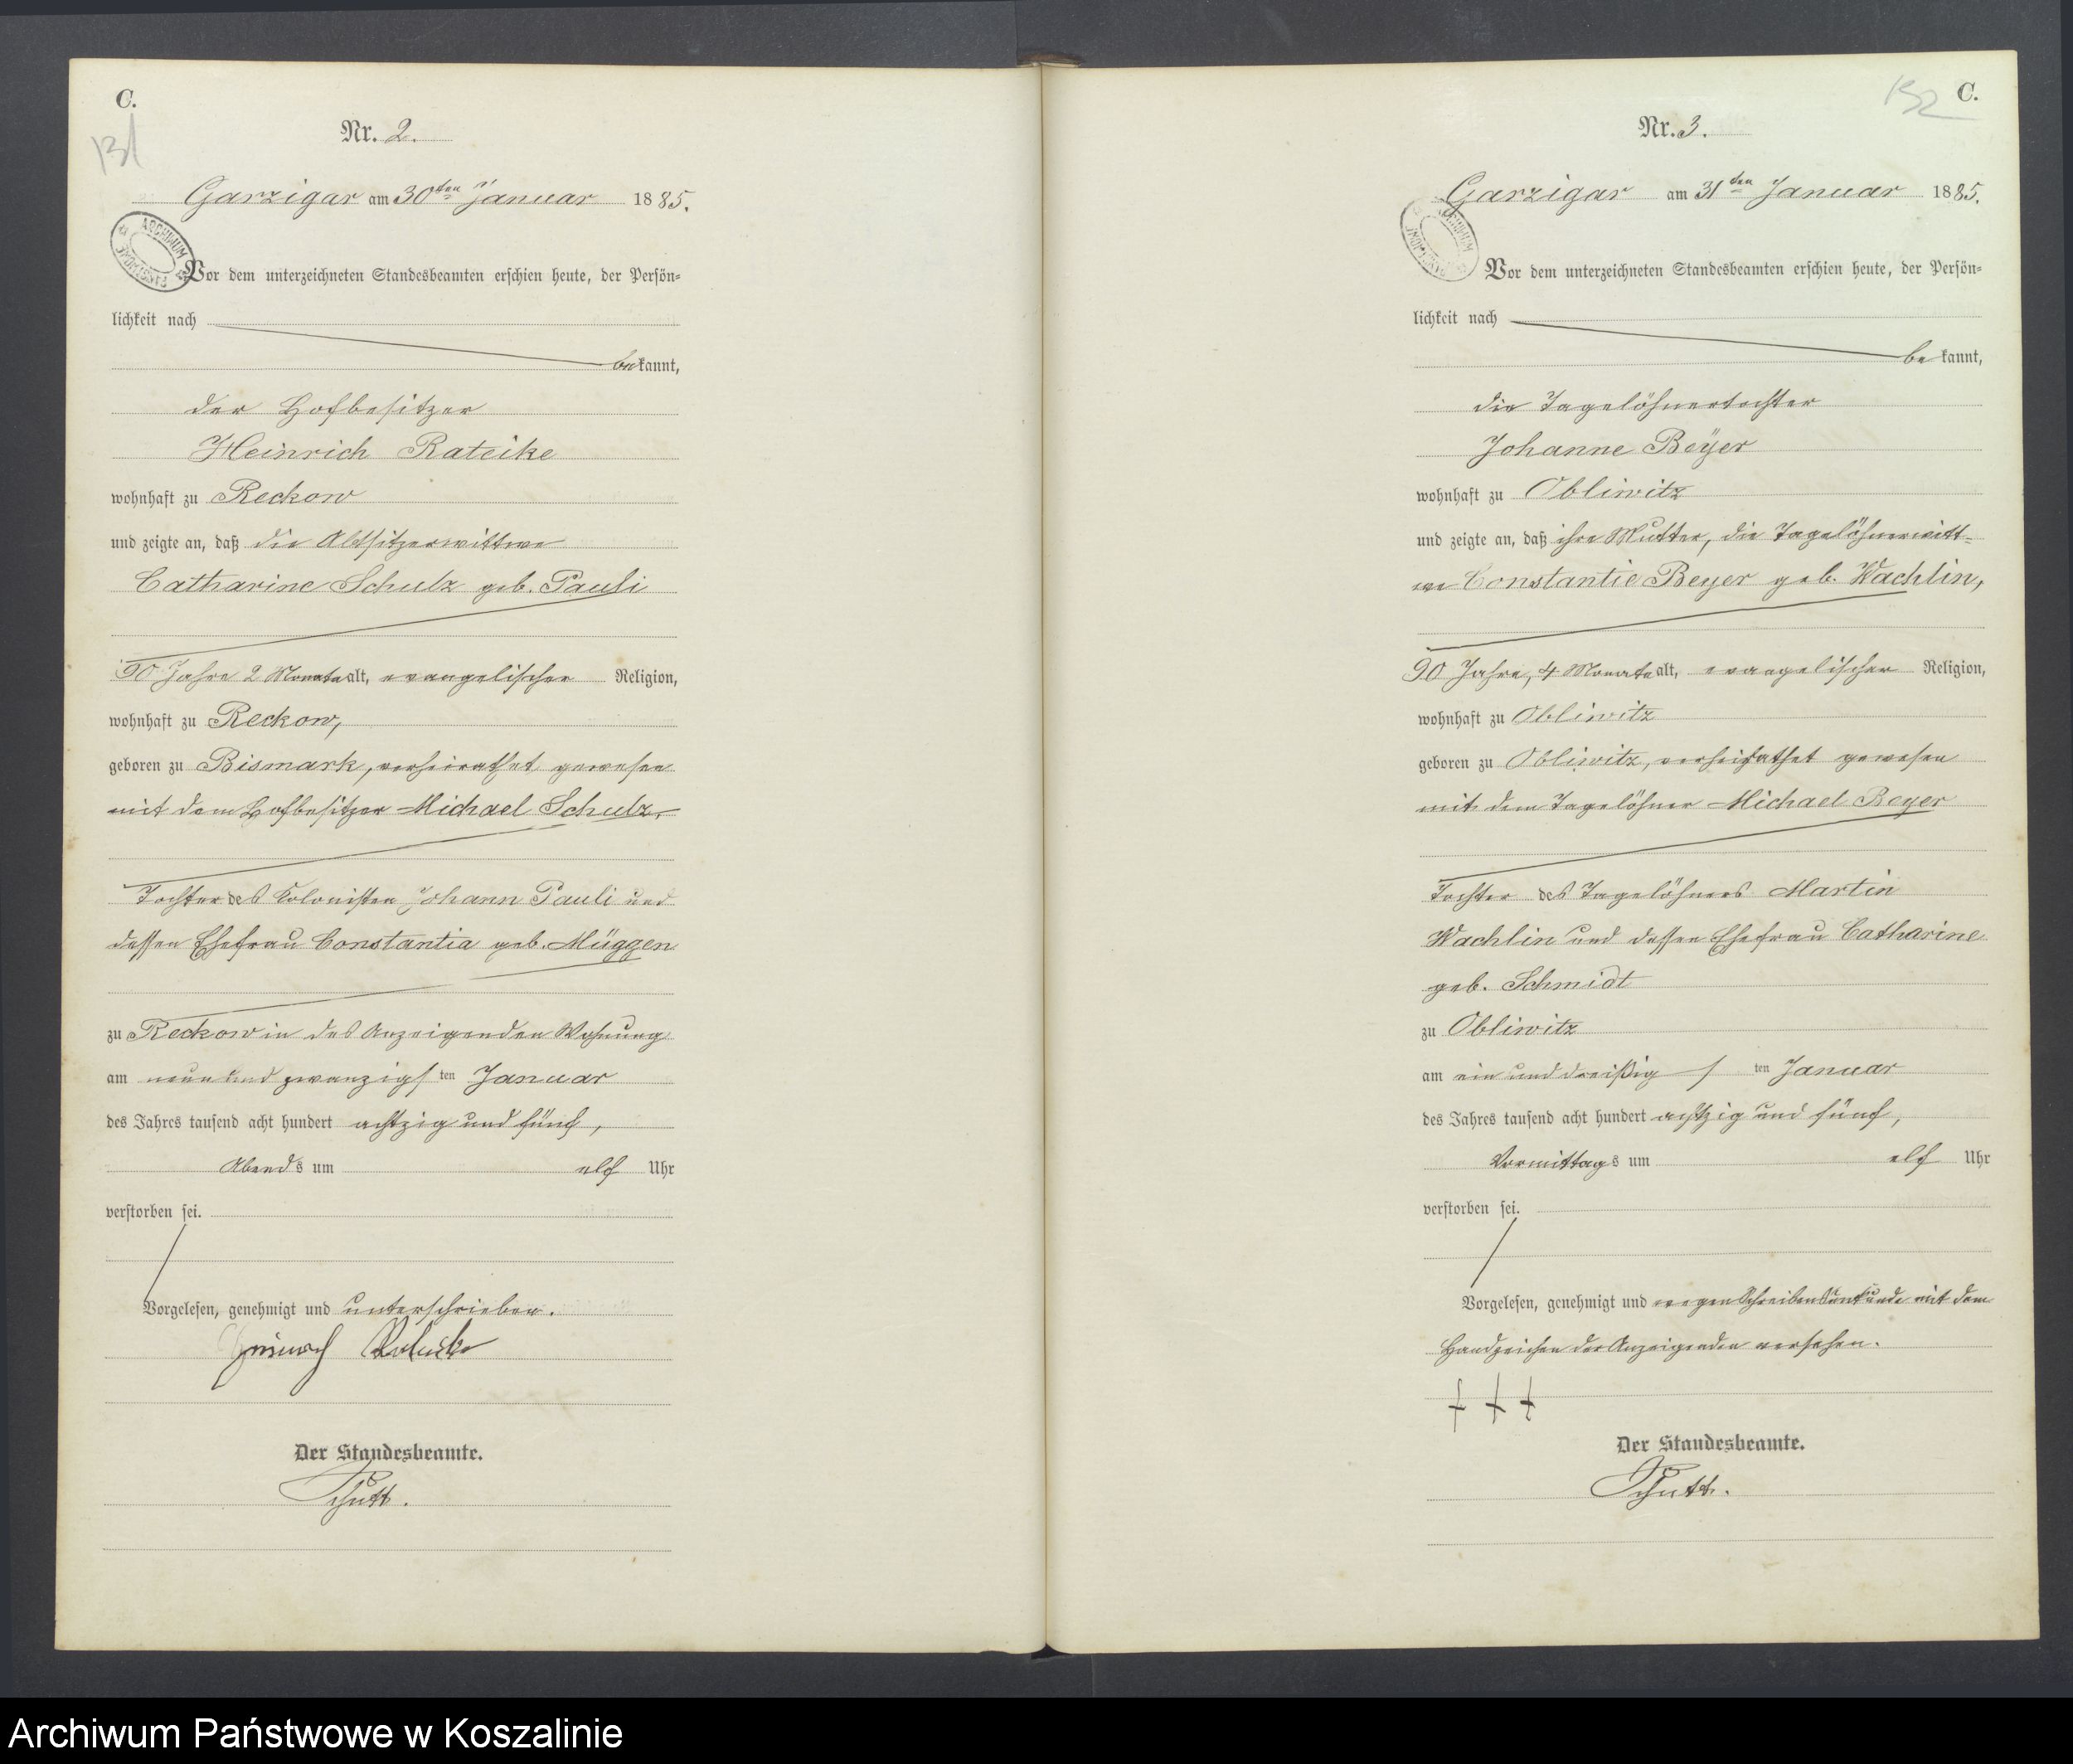 C.
131
Nr. 2.
Garzigar am 30ten Januar 1885.
ARCHIWUM
Vor dem unterzeichneten Standesbeamten erschien heute, der Persön=
lichkeit nach
bekannt,
der Hofbesitzer
Heinrich Rateike
wohnhaft zu Reckow
und zeigte an, daß die Altsitzerwittwe
Catharine Schulz geb. Pauli
90 Jahre 2 Monate alt, evangelischer Religion,
wohnhaft zu Reckow,
geboren zu Bismark, verheirathet gewesen
mit dem Hofbesitzer Michael Schulz,
Tochter des Kolonisten Johann Pauli und
dessen Ehefrau Constantia geb. Müggen
zu Reckow in des Anzeigenden Wohnung
am neun und zwanzigsten Januar
des Jahres tausend acht hundert achtzig und fünf,
Abends um elf Uhr
verstorben sei.
Vorgelesen, genehmigt und unterschrieben.
Heinrich Rateike
Der Standesbeamte.
Schutt.
C.
132
Nr. 3.
Garzigar am 31ten Januar 1885.
Vor dem unterzeichneten Standesbeamten erschien heute, der Persön=
lichkeit nach
bekannt,
die Tagelöhnertochter
Johanne Beÿer
wohnhaft zu Obliwitz
und zeigte an, daß ihre Mutter, die Tagelöhnerwitt=
we Constantie Beyer geb. Wachlin,
90 Jahre, 4 Monate alt, evangelischer Religion,
wohnhaft zu Obliwitz
geboren zu Obliwitz, verheirathet gewesen
mit dem Tagelöhner Michael Beyer
Tochter des Tagelöhners Martin
Wachlin und dessen Ehefrau Catharine
geb. Schmidt
zu Obliwitz
am ein und dreißigsten Januar
des Jahres tausend acht hundert achtzig und fünf,
Vormittags um elf Uhr
verstorben sei.
Vorgelesen, genehmigt und wegen Schreibensunkunde mit dem
Handzeichen der Anzeigenden versehen.
† † †
Der Standesbeamte.
Schutt.
Archiwum Państwowe w Koszalinie